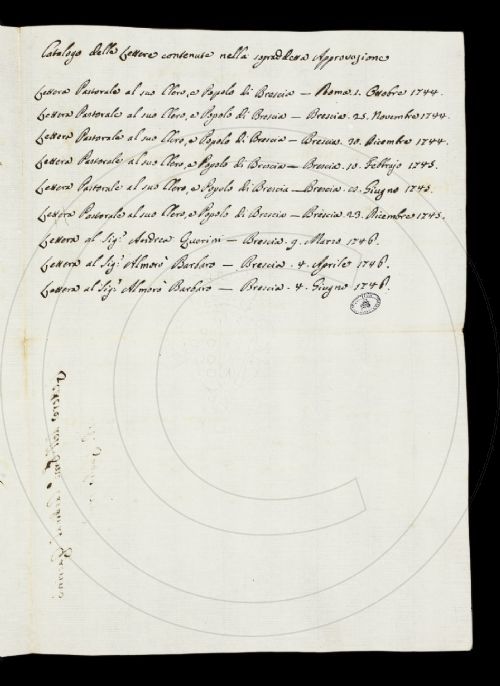 Catalogo delle Lettere contenute nella sopraddetta Approvazione
Lettera Pastorale al suo Clero, e Popolo di Brescia — Roma 1. Ottobre 1744.
Lettera Pastorale al suo Clero, e Popolo di Brescia — Brescia. 25. Novembre 1744.
Lettera Pastorale al suo Clero, e Popolo di Brescia — Brescia. 30. Dicembre 1744.
Lettera Pastorale al suo Clero, e Popolo di Brescia — Brescia. 10. Febbrajo 1745.
Lettera Pastorale al suo Clero, e Popolo di Brescia — Brescia. Giugno 1745.
Lettera Pastorale al suo Clero, e Popolo di Brescia — Brescia 23. Dicembre 1745.
Lettera al Sig.r Andrea Querini — Brescia. 9. Marzo 1746.
Lettera al Sig.r Almorò Barbaro — Brescia. 4. Aprile 1746.
Lettera al Sig.r Almorò Barbaro — Brescia. 4. Giugno 1746.